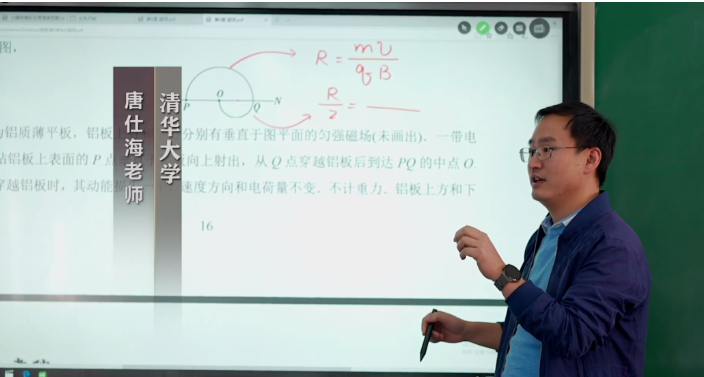 图,
R = mv/qB
R/2 =
P
O
Q
N
唐仕海老师
清华大学
铝质薄平板, 铝板上
分别有垂直于图平面的匀强磁场(未画出). 一带电
贴铝板上表面的 P 点
向上射出, 从 Q 点穿越铝板后到达 PQ 的中点 O.
穿越铝板时, 其动能
速度方向和电荷量不变. 不计重力. 铝板上方和下
16